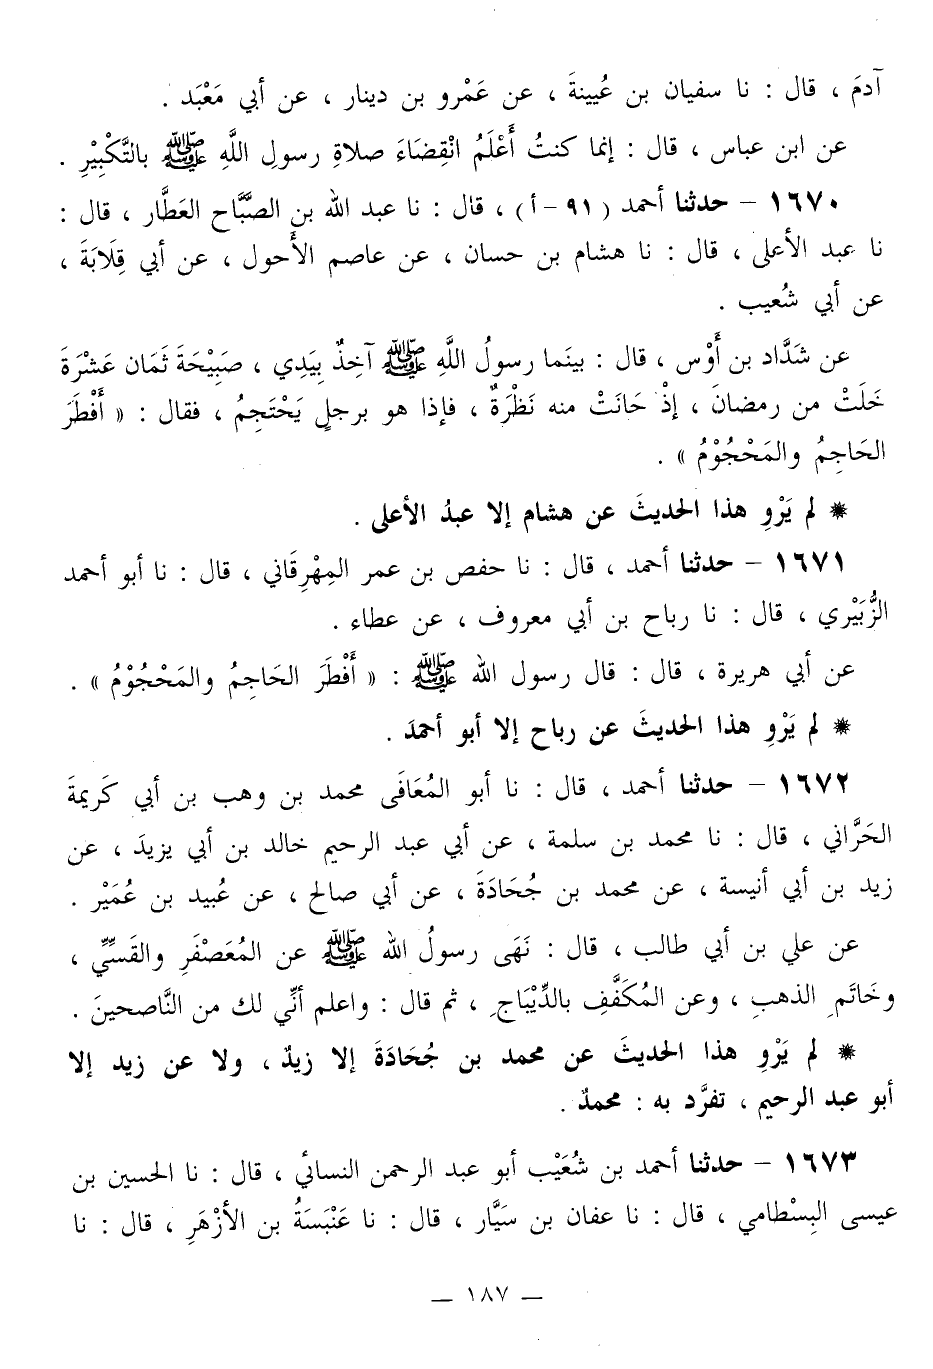 آدمَ ، قال : نا سفيان بن عُيينةَ ، عن عَمْرو بن دينار ، عن أبي مَعْبَد .
عن ابن عباس ، قال : إنما كنتُ أَعْلَمُ انْقِضَاءَ صلاةِ رسولِ اللَّهِ ﷺ بالتَّكْبِيْرِ .
١٦٧٠ – حدثنا أحمد ( ٩١ – أ ) ، قال : نا عبد الله بن الصَّبَّاح العَطَّار ، قال :
نا عبد الأعلى ، قال : نا هشام بن حسان ، عن عاصم الأَحول ، عن أبي قِلَابَةَ ،
عن أبي شُعيب .
عن شَدَّاد بن أَوْس ، قال : بينَما رسولُ اللَّهِ ﷺ آخِذٌ بِيَدِي ، صَبِيْحَةَ ثَمَان عَشْرَةَ
خَلَتْ من رمضانَ ، إذْ حَانَتْ منه نَظْرَةٌ ، فإذا هو برجلٍ يَحْتَجِمُ ، فقال : « أَفْطَرَ
الحَاجِمُ والمَحْجُوْمُ » .
* لم يَرْوِ هذا الحديثَ عن هشام إلا عبدُ الأعلى .
١٦٧١ – حدثنا أحمد ، قال : نا حفص بن عمر المِهْرِقَاني ، قال : نا أبو أحمد
الزُّبَيْري ، قال : نا رباح بن أبي معروف ، عن عطاء .
عن أبي هريرة ، قال : قال رسول الله ﷺ : « أَفْطَرَ الحَاجِمُ والمَحْجُوْمُ » .
* لم يَرْوِ هذا الحديثَ عن رباح إلا أبو أحمدَ .
١٦٧٢ – حدثنا أحمد ، قال : نا أبو المُعَافَى محمد بن وهب بن أبي كَريمةَ
الحَرَّاني ، قال : نا محمد بن سلمة ، عن أبي عبد الرحيم خالد بن أبي يزيدَ ، عن
زيد بن أبي أنيسة ، عن محمد بن جُحَادَةَ ، عن أبي صالح ، عن عُبيد بن عُمَيْر .
عن علي بن أبي طالب ، قال : نَهَى رسولُ الله ﷺ عن المُعَصْفَرِ والقَسِّيِّ ،
وخَاتَمِ الذهبِ ، وعن المُكَفَّفِ بالدِّيْبَاجِ ، ثم قال : واعلم أنِّي لك من النَّاصحينَ .
* لم يَرْوِ هذا الحديثَ عن محمد بن جُحَادَةَ إلا زيدٌ ، ولا عن زيد إلا
أبو عبد الرحيم ، تفرَّد به : محمدٌ .
١٦٧٣ – حدثنا أحمد بن شُعَيْب أبو عبد الرحمن النسائي ، قال : نا الحسين بن
عيسى البِسْطامي ، قال : نا عفان بن سَيَّار ، قال : نا عَنْبَسَةُ بن الأَزْهَرِ ، قال : نا
— ١٨٧ —